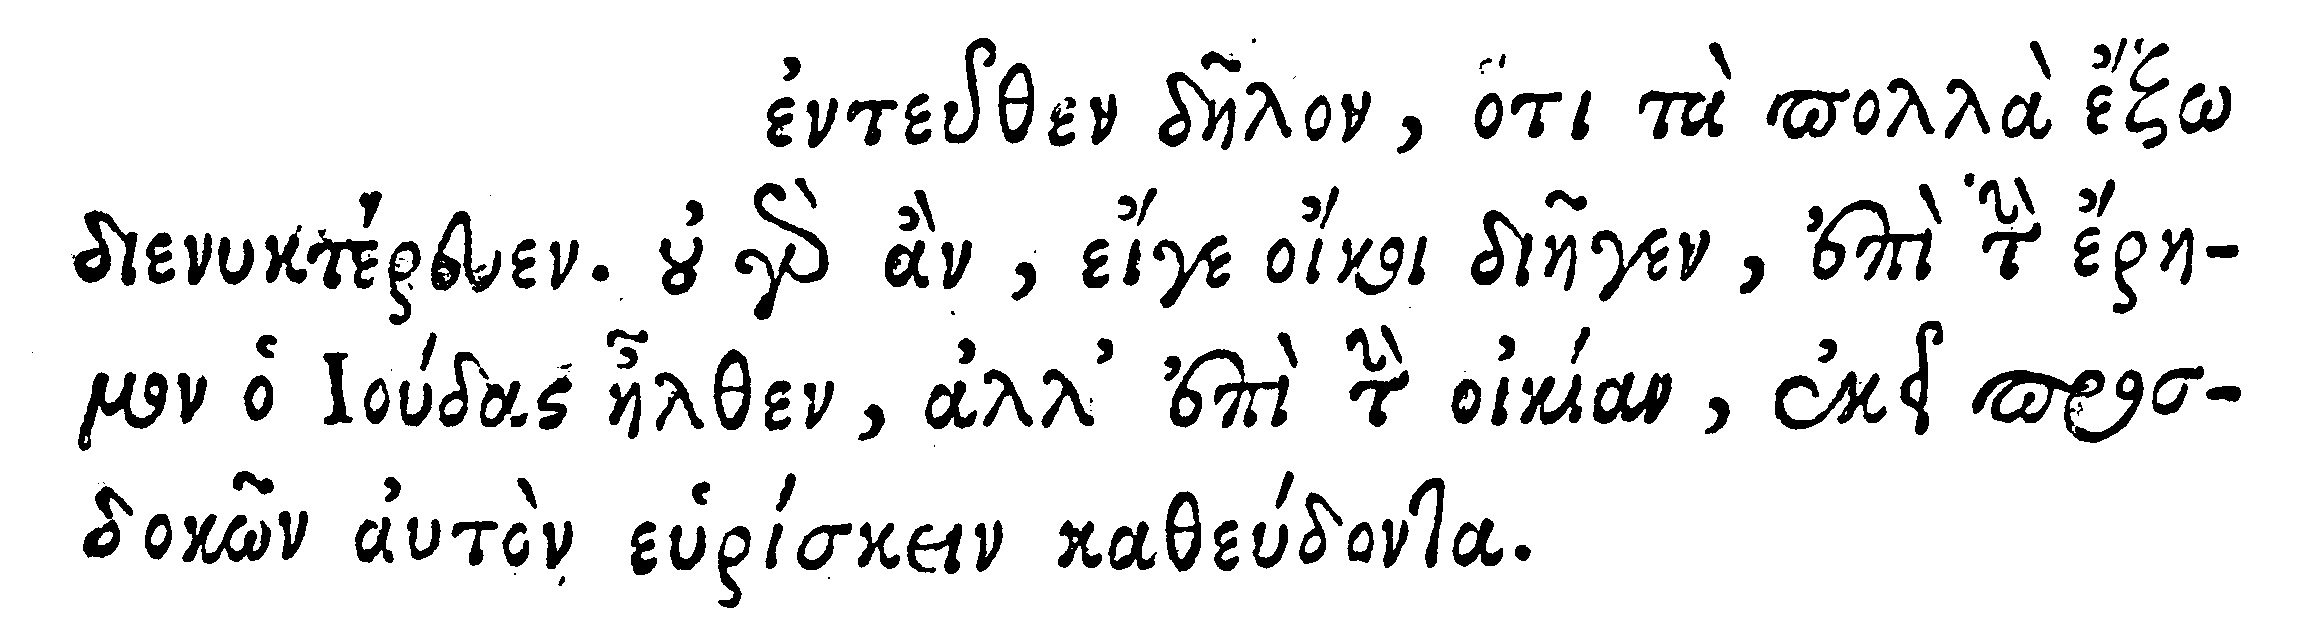 ἐντεῦθεν δῆλον, ὅτι τὰ πολλὰ ἔξω
διενυκτέρευεν. οὐ γὰρ ἂν, εἴγε οἴκοι διῆγεν, ἐπὶ τὴν ἔρη-
μον ὁ Ιούδας ἦλθεν, ἀλλ’ ἐπὶ τὴν οἰκίαν, ἐκεῖ προσ-
δοκῶν αὐτὸν εὑρίσκειν καθεύδοντα.